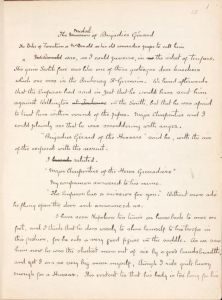 Medal
The of Brigadier Gerard
The Duke of Tarentum or McDonald as his old comrades prefer to call him
was, as I could perceive, in the vilest of tempers.
His grim Scotch face was like one of those grotesque door knockers
which one sees in the Faubourg St Germain. We heard afterwards
that the Emperor had said in jest that he would have sent him
against Wellington in the South, but that he was afraid
to trust him within sound of the pipes. Major Charpentier and I
could plainly see that he was smouldering with anger.
"Brigadier Gerard of the Hussars" said he, with the air
of the corporal with the recruit.
I saluted.
"Major Charpentier of the Horse Grenadiers"
My companion answered to his name.
"The Emperor has a mission for you." Without more ado
he flung open the door and announced us.
I have seen Napoleon ten times on horseback to once on
foot, and I think that he does wisely to show himself to the troops in
this fashion, for he cuts a very good figure in the saddle. As we saw
him now he was the shortest man out of six by a good handsbreadth,
and yet I am no very big man myself, though I ride quite heavy
enough for a Hussar. It is evident too that his body is too long for his